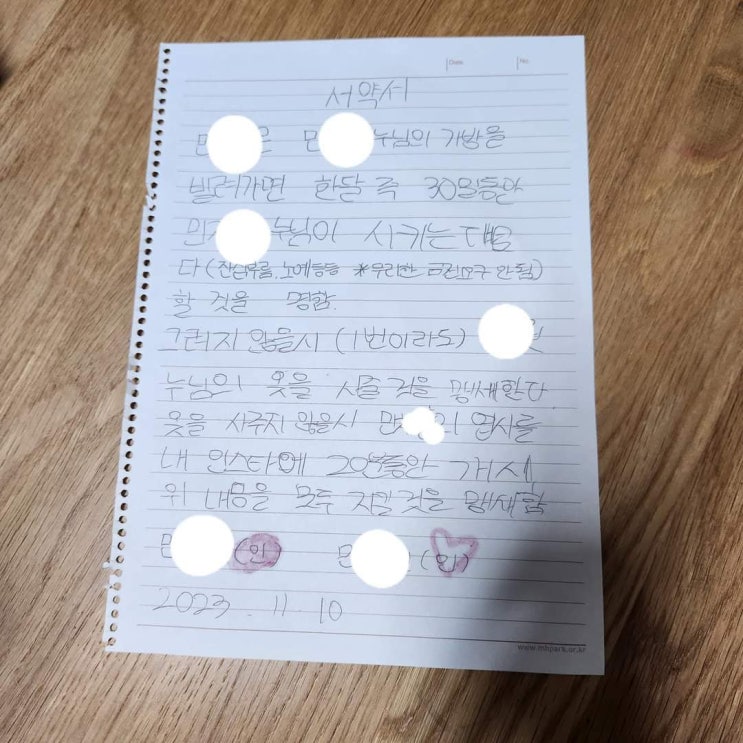 Date. No.
서약서
민 은 민 누님의 가방을
빌려가면 한달 즉 30일동안
민 누님이 시키는 대로
다 (잔심부름, 노예등등 *무리한 금전요구 안됨)
할 것을 명함.
그러지 않을시 (1번이라도)
누님의 옷을 사줄 것을 맹세한다
옷을 사주지 않을시 의 엽사를
내 인스타에 20년동안 게시
위 내용을 모두 지킬 것을 맹세함
민 (인) 민 (인)
2023. 11. 10
www.mhpark.or.kr